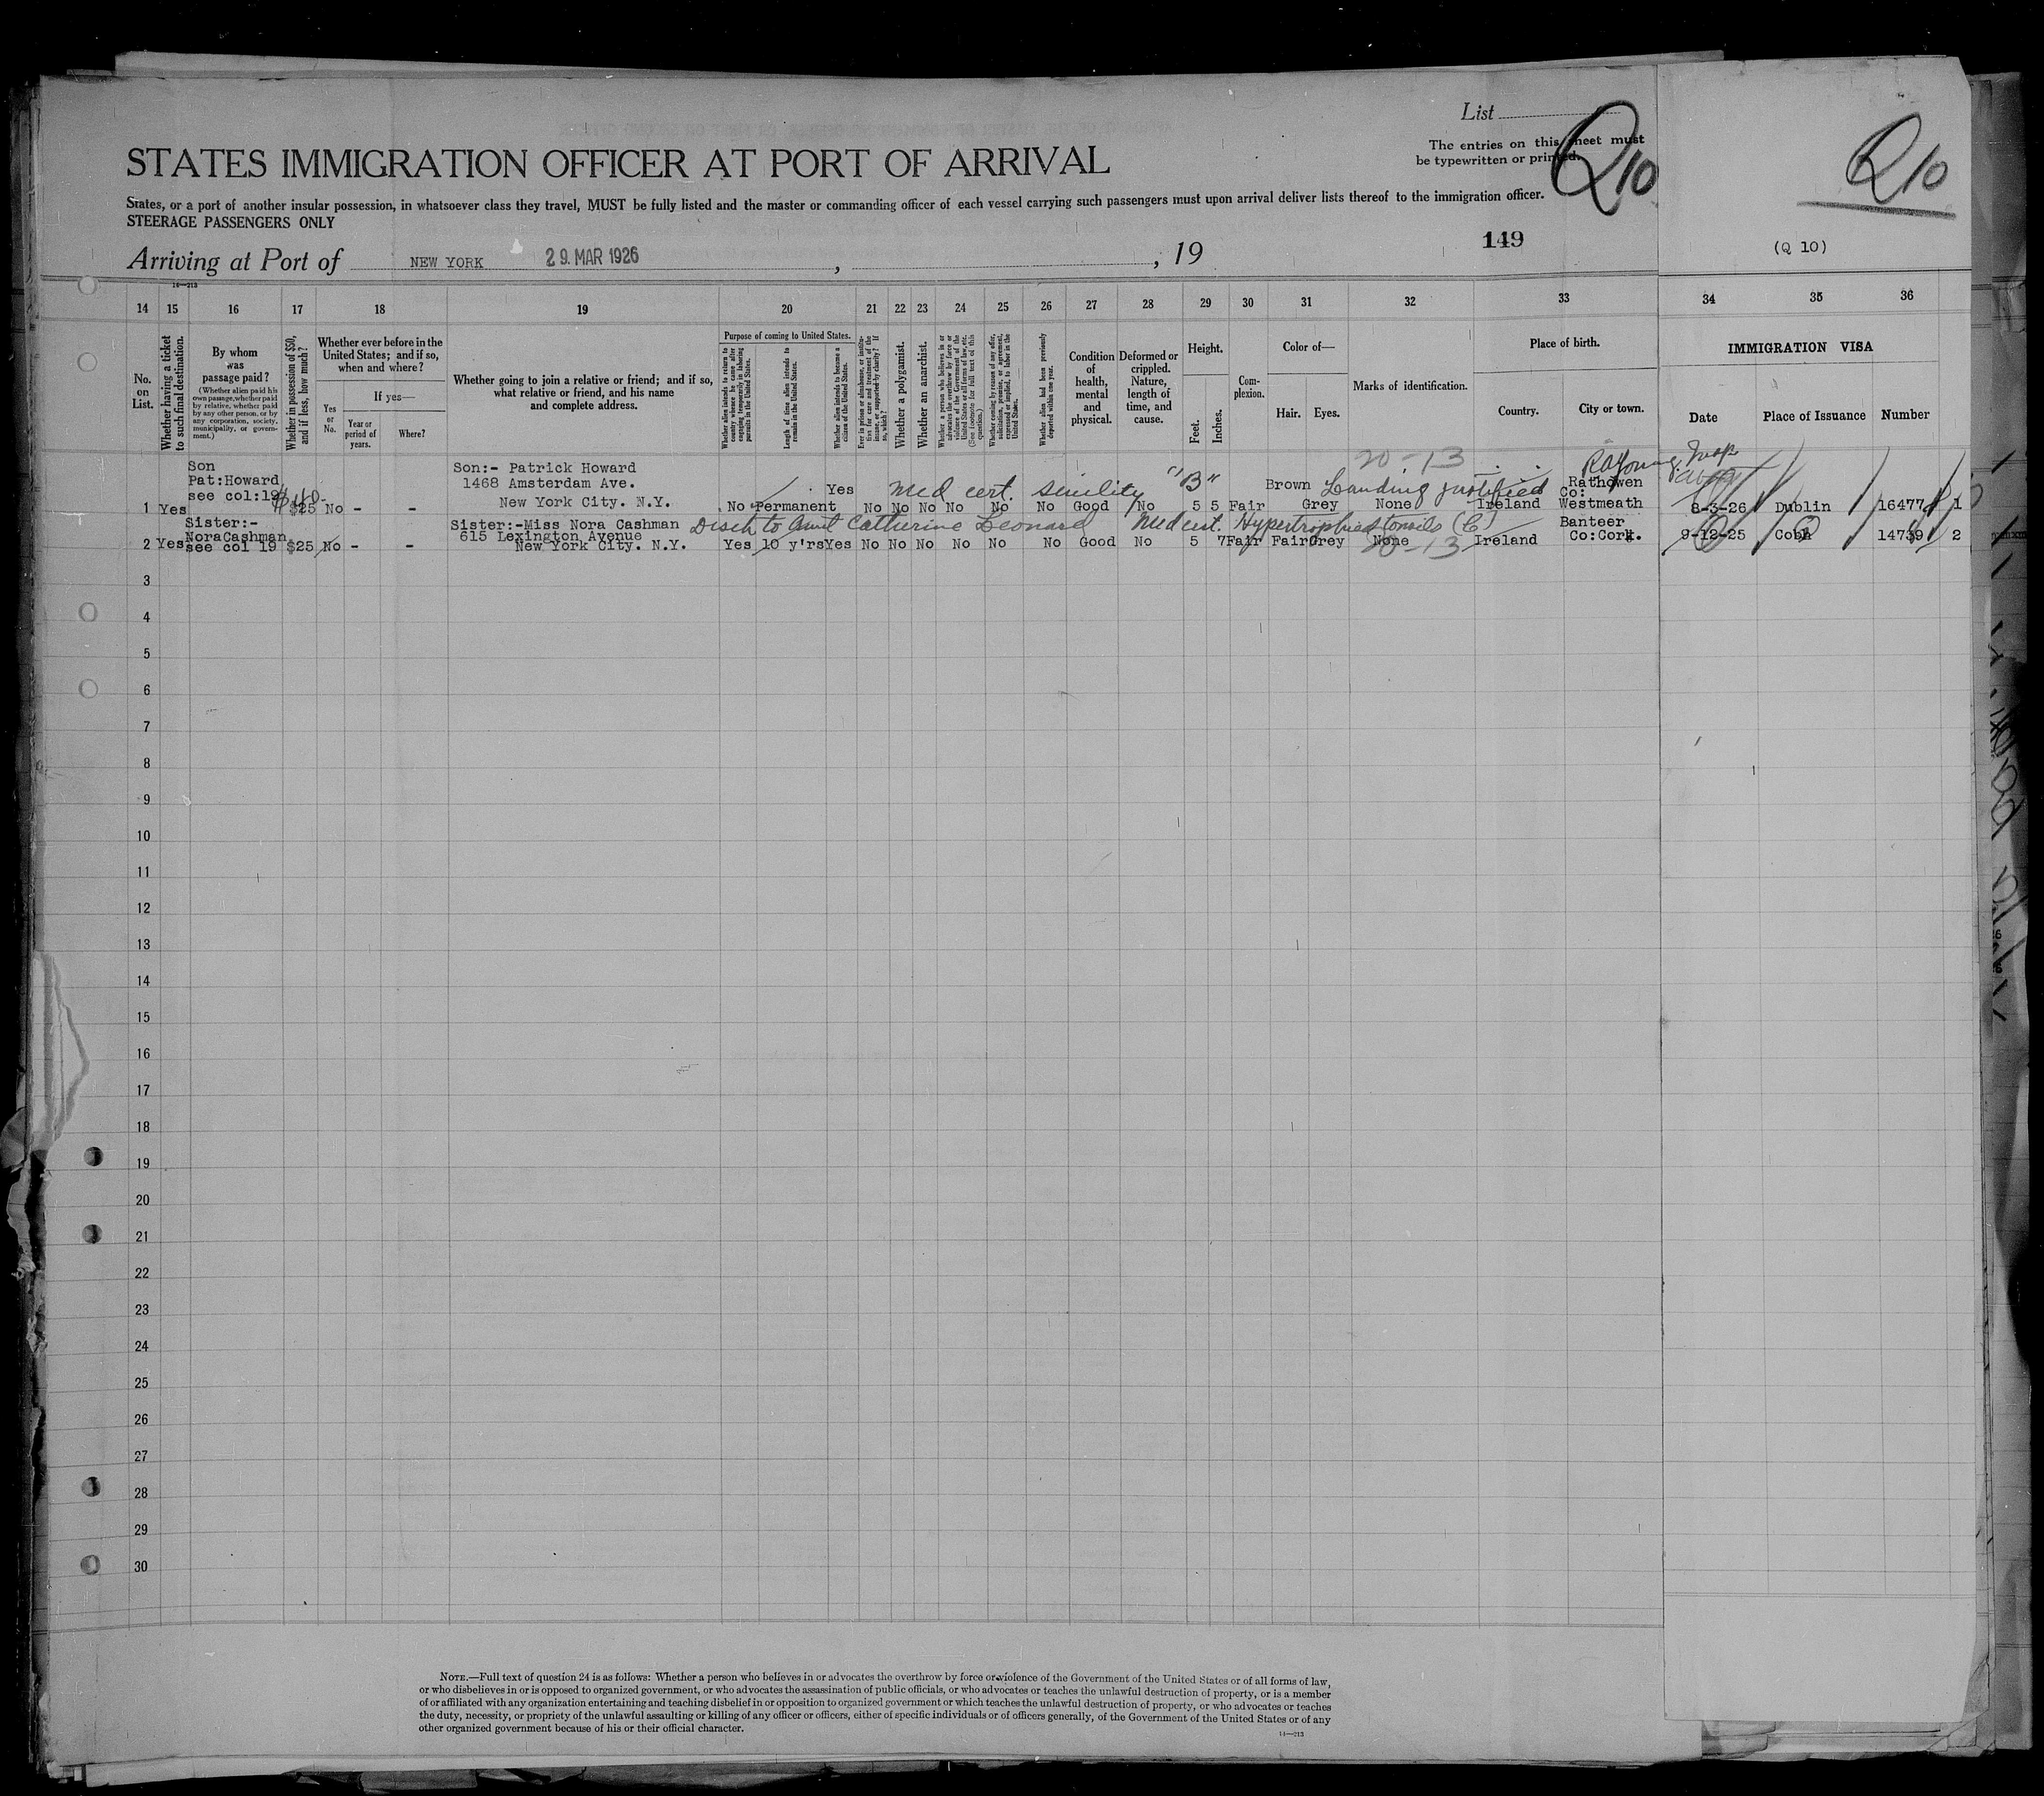 List
The entries on this sheet must
be typewritten or printed.
Q10
Q10
STATES IMMIGRATION OFFICER AT PORT OF ARRIVAL
States, or a port of another insular possession, in whatsoever class they travel, MUST be fully listed and the master or commanding officer of each vessel carrying such passengers must upon arrival deliver lists thereof to the immigration officer.
STEERAGE PASSENGERS ONLY
149
(Q 10)
Arriving at Port of NEW YORK 29. MAR 1926 , , 19
14—213
14 15 16 17 18 19 20 21 22 23 24 25 26 27 28 29 30 31 32 33 34 35 36
No.
on
List.
Whether having a ticket
to such final destination.
By whom
was
passage paid?
(Whether alien paid his
own passage, whether paid
by relative, whether paid
by any other person, or by
any corporation, society,
municipality, or govern-
ment.)
Whether in possession of $50,
and if less, how much?
Whether ever before in the
United States; and if so,
when and where?
Yes
or
No.
If yes—
Year or
period of
years.
Where?
Whether going to join a relative or friend; and if so,
what relative or friend, and his name
and complete address.
Purpose of coming to United States.
Whether alien intends to return to
country whence he came after
engaging temporarily in laboring
pursuits in the United States.
Length of time alien intends to
remain in the United States.
Whether alien intends to become a
citizen of the United States.
Ever in prison or almshouse, or institu-
tion for care and treatment of the
insane, or supported by charity? If
so, which?
Whether a polygamist.
Whether an anarchist.
Whether a person who believes in or
advocates the overthrow by force or
violence of the Government of the
United States or all forms of law, etc.
(See footnote for full text of this
question.)
Whether coming by reason of any offer,
solicitation, promise, or agreement,
expressed or implied, to labor in the
United States.
Whether alien had been previously
deported within one year.
Condition
of
health,
mental
and
physical.
Deformed or
crippled.
Nature,
length of
time, and
cause.
Height.
Feet.
Inches.
Com-
plexion.
Color of—
Hair. Eyes.
Marks of identification.
Place of birth.
Country. City or town.
IMMIGRATION VISA
Date Place of Issuance Number
20-13
Son Son:- Patrick Howard
Pat:Howard 1468 Amsterdam Ave. Yes Med cert. senility "B" Brown Landing justified Rathowen
see col:19 $40 New York City. N.Y. Co:
1 Yes $25 No - - No Permanent No No No No No No Good No 5 5 Fair Grey None Ireland Westmeath 8-3-26 Dublin 16477 1
Sister:- Sister:-Miss Nora Cashman Disch to Aunt Catherine Leonard Med cert. Hypertrophied tonsils (C) Banteer
NoraCashman 615 Lexington Avenue
2 Yes see col 19 $25 No - - New York City. N.Y. Yes 10 y'rs Yes No No No No No No Good No 5 7 Fair Fair Grey None 20-13 Ireland Co:Cork. 9-12-25 Cobh 14739 2
3
4
5
6
7
8
9
10
11
12
13
14
15
16
17
18
19
20
21
22
23
24
25
26
27
28
29
30
NOTE.—Full text of question 24 is as follows: Whether a person who believes in or advocates the overthrow by force or violence of the Government of the United States or of all forms of law,
or who disbelieves in or is opposed to organized government, or who advocates the assassination of public officials, or who advocates or teaches the unlawful destruction of property, or is a member
of or affiliated with any organization entertaining and teaching disbelief in or opposition to organized government or which teaches the unlawful destruction of property, or who advocates or teaches
the duty, necessity, or propriety of the unlawful assaulting or killing of any officer or officers, either of specific individuals or of officers generally, of the Government of the United States or of any
other organized government because of his or their official character.
14—213